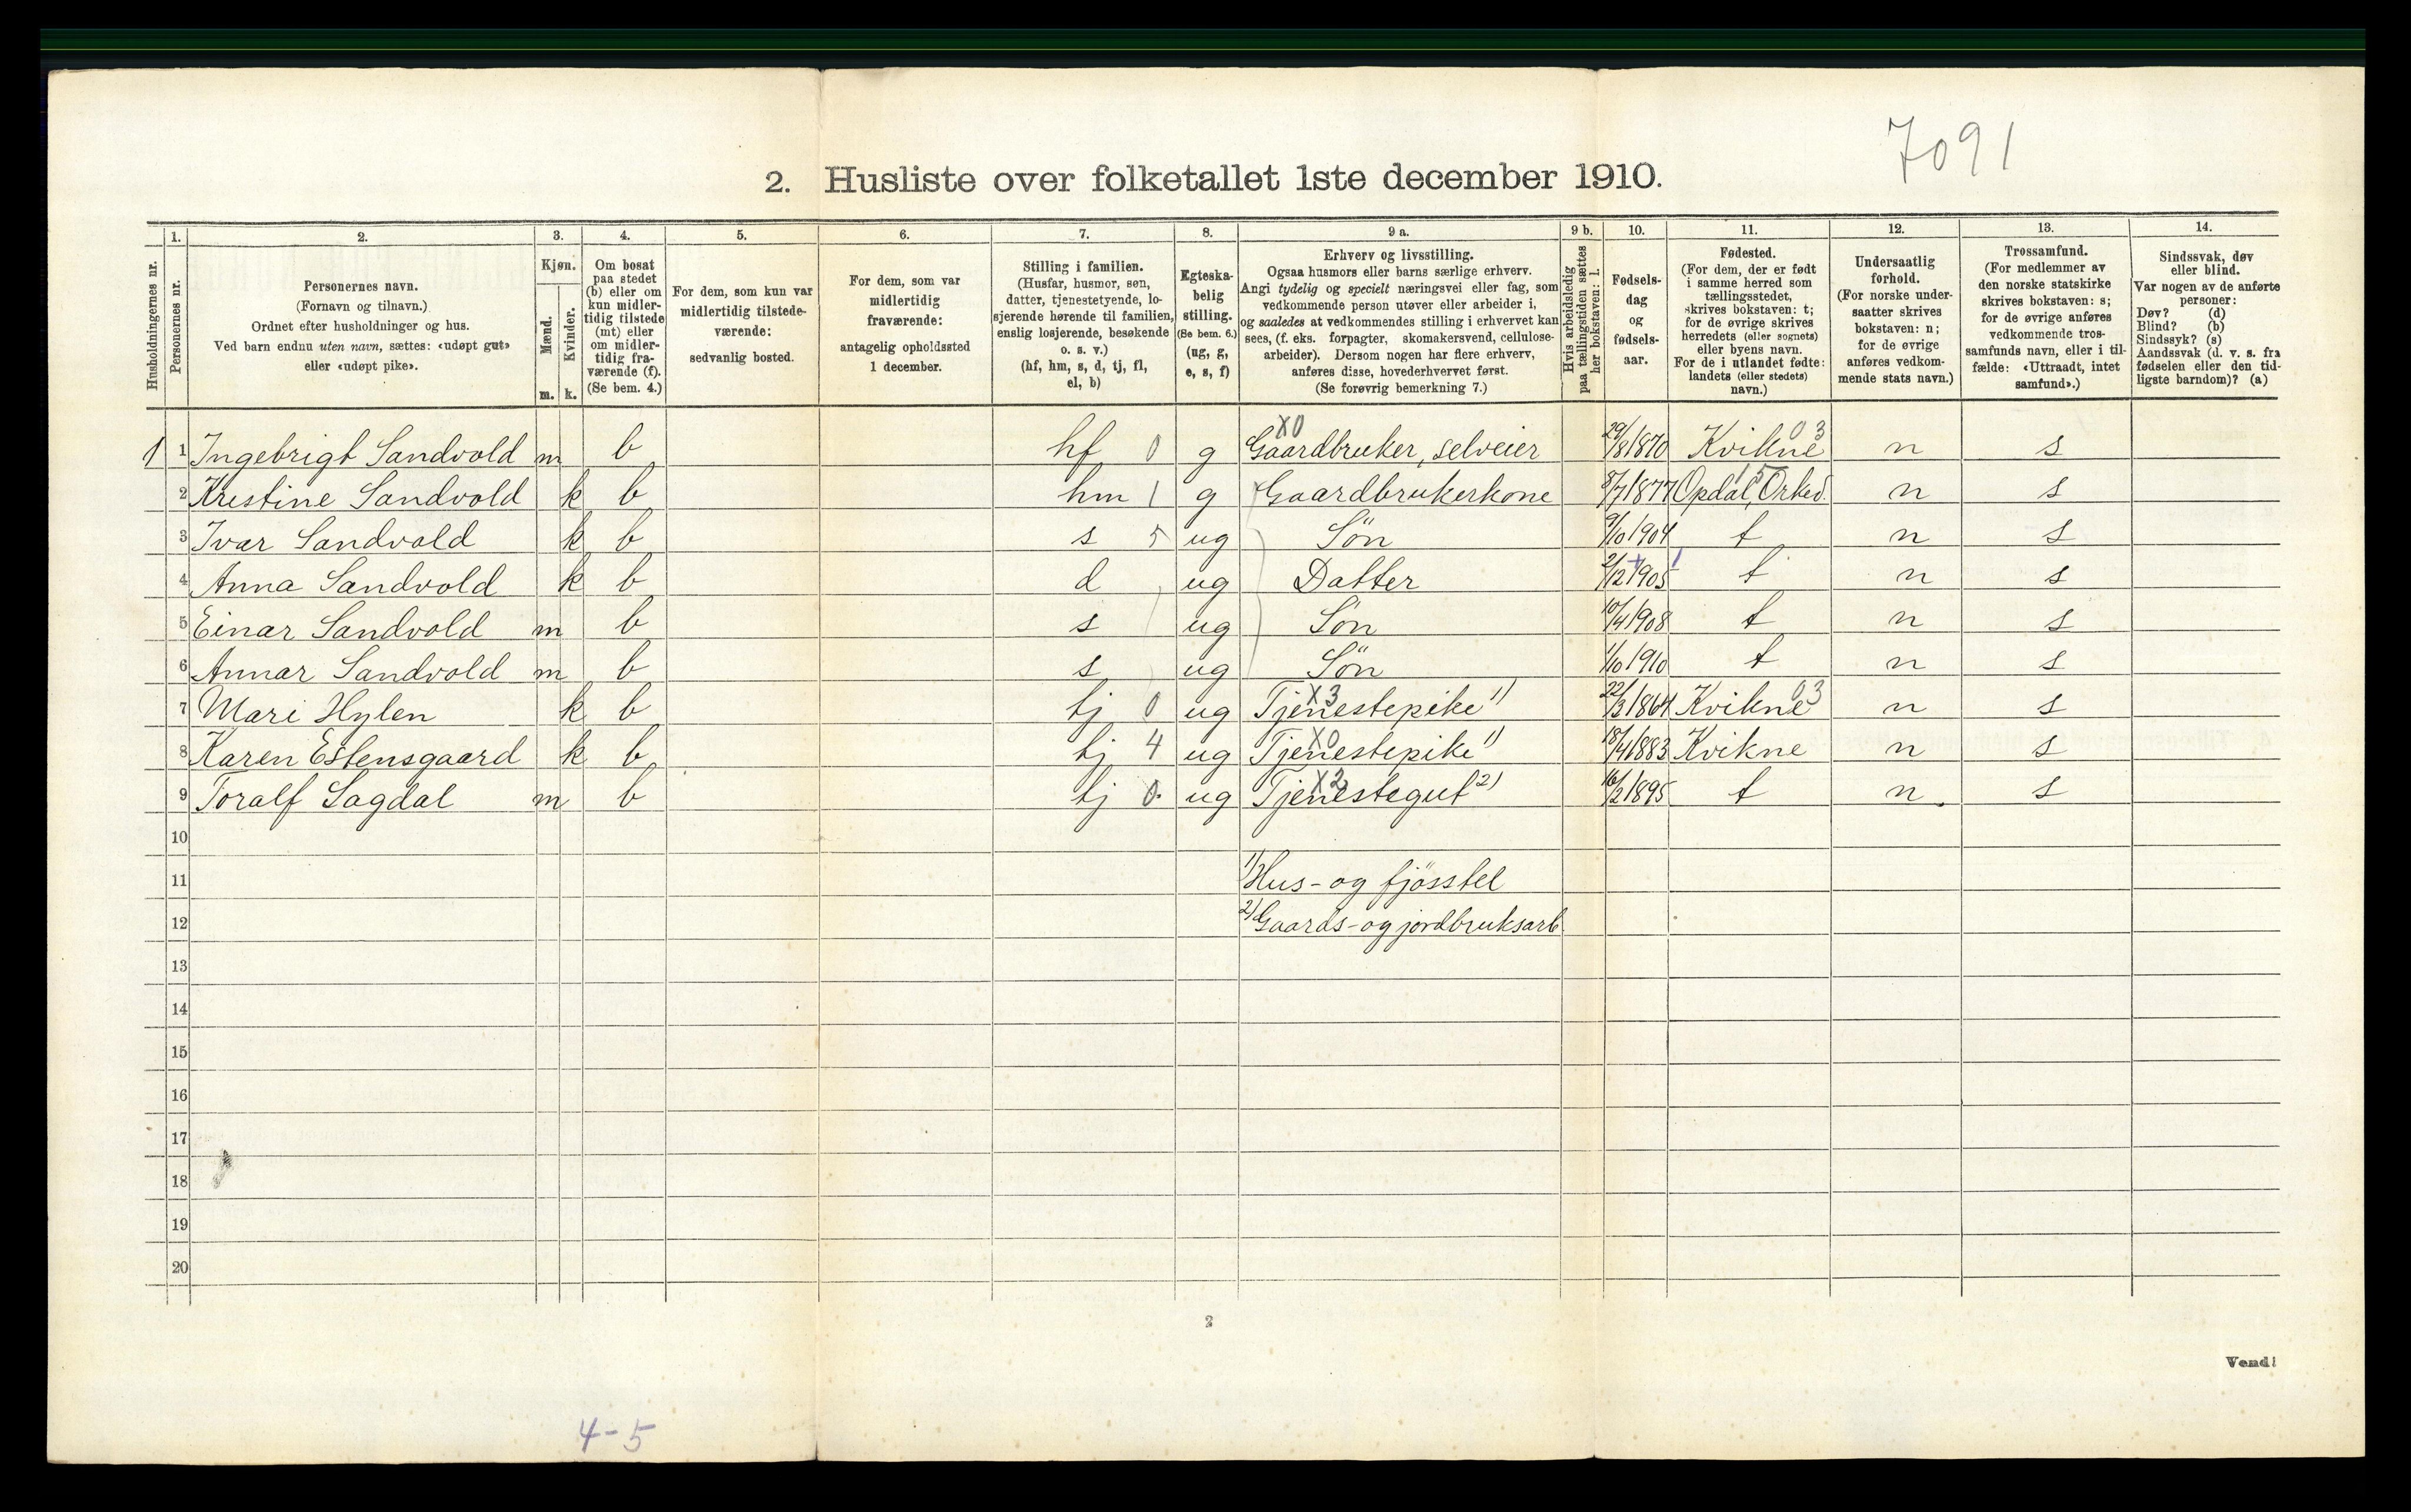 7091
2. Husliste over folketallet 1ste december 1910.
Husholdningernes nr.
1.
Personernes nr.
2.
Personernes navn.
(Fornavn og tilnavn.)
Ordnet efter husholdninger og hus.
Ved barn endnu uten navn, sættes: «udøpt gut»
eller «udøpt pike».
3.
Kjøn.
Mænd.
Kvinder.
m. k.
4.
Om bosat
paa stedet
(b) eller om
kun midler-
tidig tilstede
(mt) eller
om midler-
tidig fra-
værende (f).
(Se bem. 4.)
5.
For dem, som kun var
midlertidig tilstede-
værende:
sedvanlig bosted.
6.
For dem, som var
midlertidig
fraværende:
antagelig opholdssted
1 december.
7.
Stilling i familien.
(Husfar, husmor, søn,
datter, tjenestetyende, lo-
sjerende hørende til familien,
enslig losjerende, besøkende
o. s. v.)
(hf, hm, s, d, tj, fl,
el, b)
8.
Egteska-
belig
stilling.
(Se bem. 6.)
(ug, g,
e, s, f)
9 a.
Erhverv og livsstilling.
Ogsaa husmors eller barns særlige erhverv.
Angi tydelig og specielt næringsvei eller fag, som
vedkommende person utøver eller arbeider i,
og saaledes at vedkommendes stilling i erhvervet kan
sees, (f. eks. forpagter, skomakersvend, cellulose-
arbeider). Dersom nogen har flere erhverv,
anføres disse, hovederhvervet først.
(Se forøvrig bemerkning 7.)
9 b.
Hvis arbeidsledig
paa tællingstiden sættes
her bokstaven: l.
10.
Fødsels-
dag
og
fødsels-
aar.
11.
Fødested.
(For dem, der er født
i samme herred som
tællingsstedet,
skrives bokstaven: t;
for de øvrige skrives
herredets (eller sognets)
eller byens navn.
For de i utlandet fødte:
landets (eller stedets)
navn.)
12.
Undersaatlig
forhold.
(For norske under-
saatter skrives
bokstaven: n;
for de øvrige
anføres vedkom-
mende stats navn.)
13.
Trossamfund.
(For medlemmer av
den norske statskirke
skrives bokstaven: s;
for de øvrige anføres
vedkommende tros-
samfunds navn, eller i til-
fælde: «Uttraadt, intet
samfund».)
14.
Sindssvak, døv
eller blind.
Var nogen av de anførte
personer:
Døv? (d)
Blind? (b)
Sindssyk? (s)
Aandssvak (d. v. s. fra
fødselen eller den tid-
ligste barndom)? (a)
1 1 Ingebrigt Sandvold m b hf 0 g X0 Gaardbruker, selveier 29/8 1870 Kvikne 03 n s
2 Kristine Sandvold k b hm 1 g Gaardbrukerkone 8/7 1877 Opdal, Orked. 15 n s
3 Ivar Sandvold k b s 5 ug Sön 9/10 1904 t n s
4 Anna Sandvold k b d ug Datter 2/12 1905 t n s
5 Einar Sandvold m b s ug Sön 10/4 1908 t n s
6 Annar Sandvold m b s ug Sön 1/10 1910 t n s
7 Mari Hylen k b tj 0 ug X3 Tjenestepike 1) 22/3 1864 Kvikne 03 n s
8 Karen Estensgaard k b tj 4 ug X0 Tjenestepike 1) 18/4 1883 Kvikne n s
9 Toralf Sagdal m b tj 0 ug X2 Tjenestegut 2) 16/2 1895 t n s
10
11 1) Hus- og fjösstel
12 2) Gaards- og jordbruksarb.
13
14
15
16
17
18
19
20
2
Vend!
4-5